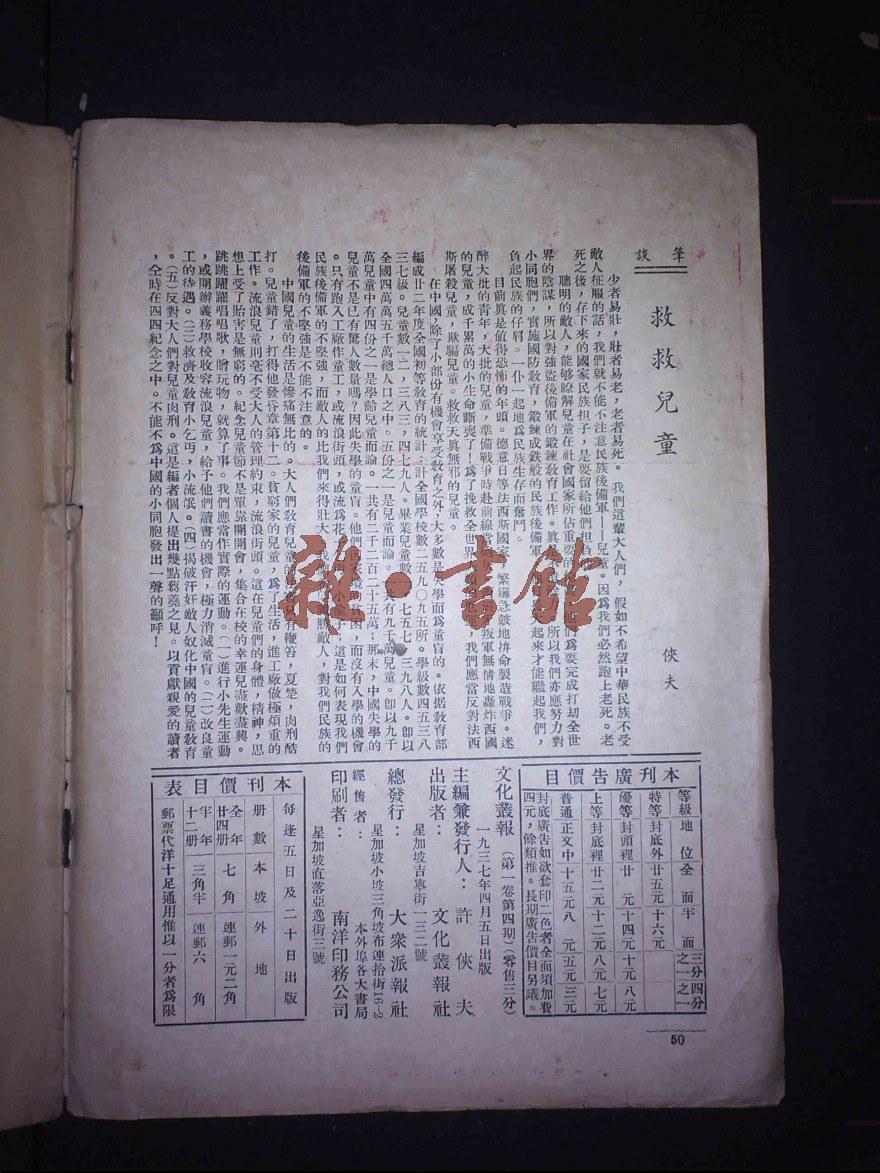 筆談
救救兒童
俠夫
少者易壯，壯者易老，老者易死。我們這輩大人們，假如不希望中華民族不受
敵人征服的話，我們就不能不注意民族後備軍——兒童。因為我們必然跑上老死。老
死之後，存下來的國家民族担子，是要留給他們担
聰明的敵人，能够瞭解兒童在社會國家所佔重要的
們為要完成打刧全世
界的陰謀，所以對強盜後備軍的鍛鍊教育工作。真
所以我們亦應努力對
小同胞們，實施國防教育，鍛鍊成鉄般的民族後備軍
起來才能繼起我們，
負起民族的仔肩。一仆一起地為民族生存而奮鬥。
目前真是值得恐怖的年頭。德意日等法西斯國家
緊鑼急鼓地拚命製造戰爭。迷
醉大批的青年，大批的兒童，準備戰爭時赴前線
叛軍無情地轟炸西國
的兒童，成千累萬的小生命斷喪了！為了挽救全世界
我們應當反對法西
斯屠殺兒童，欺騙兒童。救救天真無邪的兒童。
在中國，除了小部份有機會享受教育之外，大多數是失學而為童盲的。依据教育部
編成廿二年度全國初等教育的統計：計全國學校數二五九〇九五所。學級數四五三八
三七級。兒童數一二，三八三，四七九人。畢業兒童數
七五七，三九八人。卽以
全國四萬萬五千萬總人口之中。五份之一是兒童而論。一共有九千萬兒童。卽以九千
萬兒童中有四份之一是學齡兒童而論。一共有二千二百二十五萬；那末，中國失學的
兒童不是已有驚人數量嗎？因此失學的童盲。他們
貧困，而沒有入學的機會
。只有跑入工廠作童工，或流浪街頭，或流為花
小
這是如何表現我們
民族後備軍的不堅強，而敵人的比我們來得壯大
我們
勝敵人，對我們民族的
後備軍的不堅強是不能不注意的。
中國兒童的生活是慘痛無比的。大人們教育兒童的
只有鞭笞，夏楚，肉刑酷
打。兒童錯了，打得他發昏章第十二。貧窮家的兒童，為了生活，進工廠做極煩重的
工作。流浪兒童則毫不受大人的管理約束，流浪街頭。這在兒童們的身體，精神，思
想上受了貽害是無窮的。紀念兒童節不是單靠開開會，集合在校的幸運兒盡歡盡興。
跳跳躍躍唱唱歌，贈玩物，就算了事。我們應當作實際的運動。（一）進行小先生運動
，或開辦義務學校收容流浪兒童，給予他們讀書的機會，極力消滅童盲。（二）改良童
工的待遇。（三）救濟及教育小乞丐，小流氓。（四）揭破汗奸敵人奴化中國的兒童教育
。（五）反對大人們對兒童肉刑。這是編者個人提出幾點蒭蕘之見。以貢獻親愛的讀者
，仝時在四四紀念之中。不能不為中國的小同胞發出一聲的籲呼！
本刊廣告價目
等級 地位 全面 半面 三分之一 四分之一
特等 封底外 廿五元 十六元
優等 封頭裡 廿元 十四元 十元 八元
上等 封底裡 廿二元 十二元 八元 七元
普通 正文中 十五元 八元 五元 三元
封底廣告如欲套印二色者全面須加費
四元，餘類推。長期廣告價目另議。
文化叢報（第一卷第四期）（零售三分）
一九三七年四月五日出版
主編兼發行人：許俠夫
出版者：文化叢報社
星加坡吉寧街一三二號
總發行：大衆派報社
星加坡小坡三角坡布連拾街16-2
經售者：本外埠各大書局
印刷者：南洋印務公司
星加坡直落亞逸街三號
本刊價目表
每逢五日及二十日出版
册數 本坡 外地
全年廿四册 七角 連郵一元二角
半年十二册 三角半 連郵六角
郵票代洋十足通用惟以一分者為限
50
雜·書館